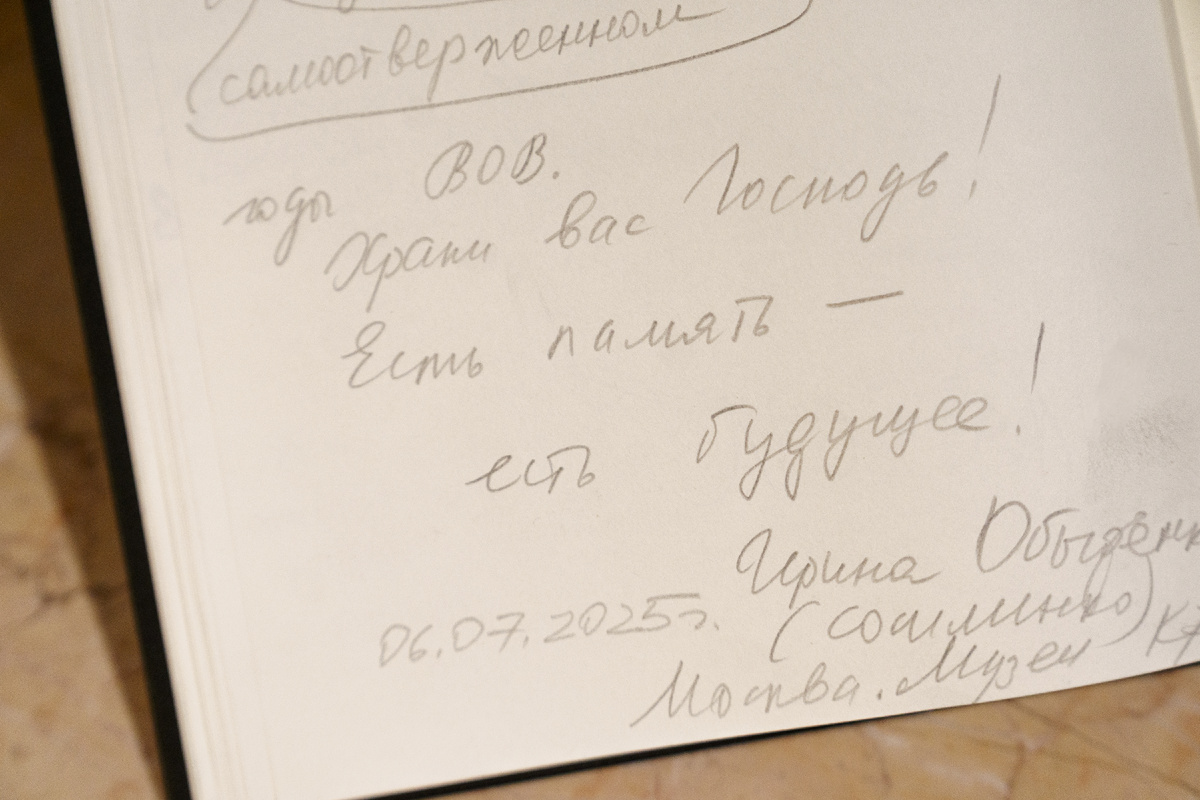 самоотверженном
годы ВОВ.
Храни вас Господь!
Есть память —
есть будущее!
Ирина
06.07.2025г.
Москва. Музей